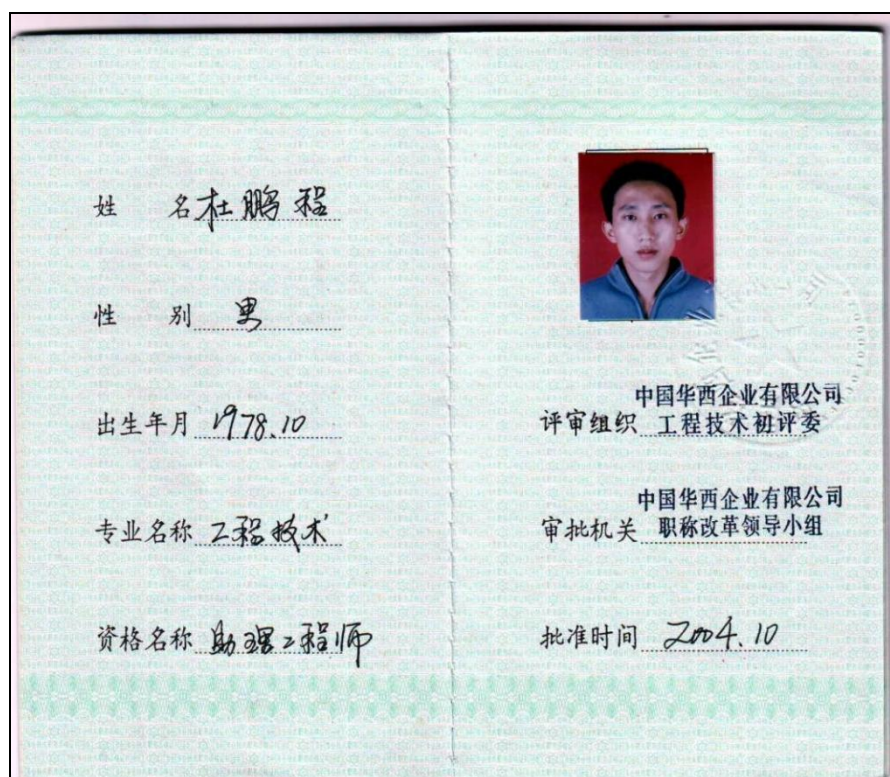 姓 名 杜鹏程
性 别 男
出生年月 1978.10
专业名称 工程技术
资格名称 助理工程师
中国华西企业有限公司
评审组织 工程技术初评委
中国华西企业有限公司
审批机关 职称改革领导小组
批准时间 2004.10